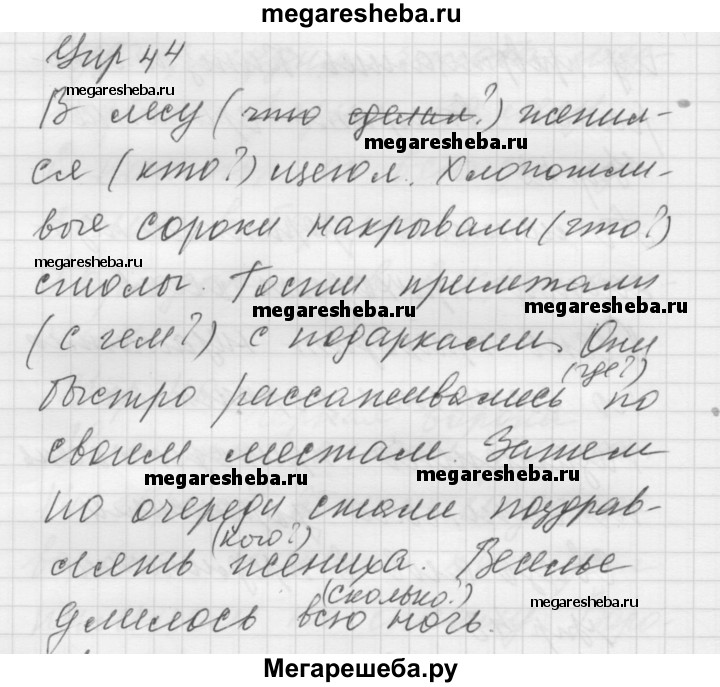 megaresheba.ru
Упр 44
megaresheba.ru
В лесу (что сделал?) женил-
megaresheba.ru
ся (кто?) щегол. Хлопотли-
вые сороки накрывали (что?)
megaresheba.ru
столы. Гости прилетали
megaresheba.ru
megaresheba.ru
(с чем?) с подарками. Они
(где?)
быстро рассаживались по
своим местам. Затем
megaresheba.ru
megaresheba.ru
по очереди стали поздрав-
(кого?)
лять жениха. Веселье
(сколько?)
megaresheba.ru
длилось всю ночь.
Мегарешеба.ру